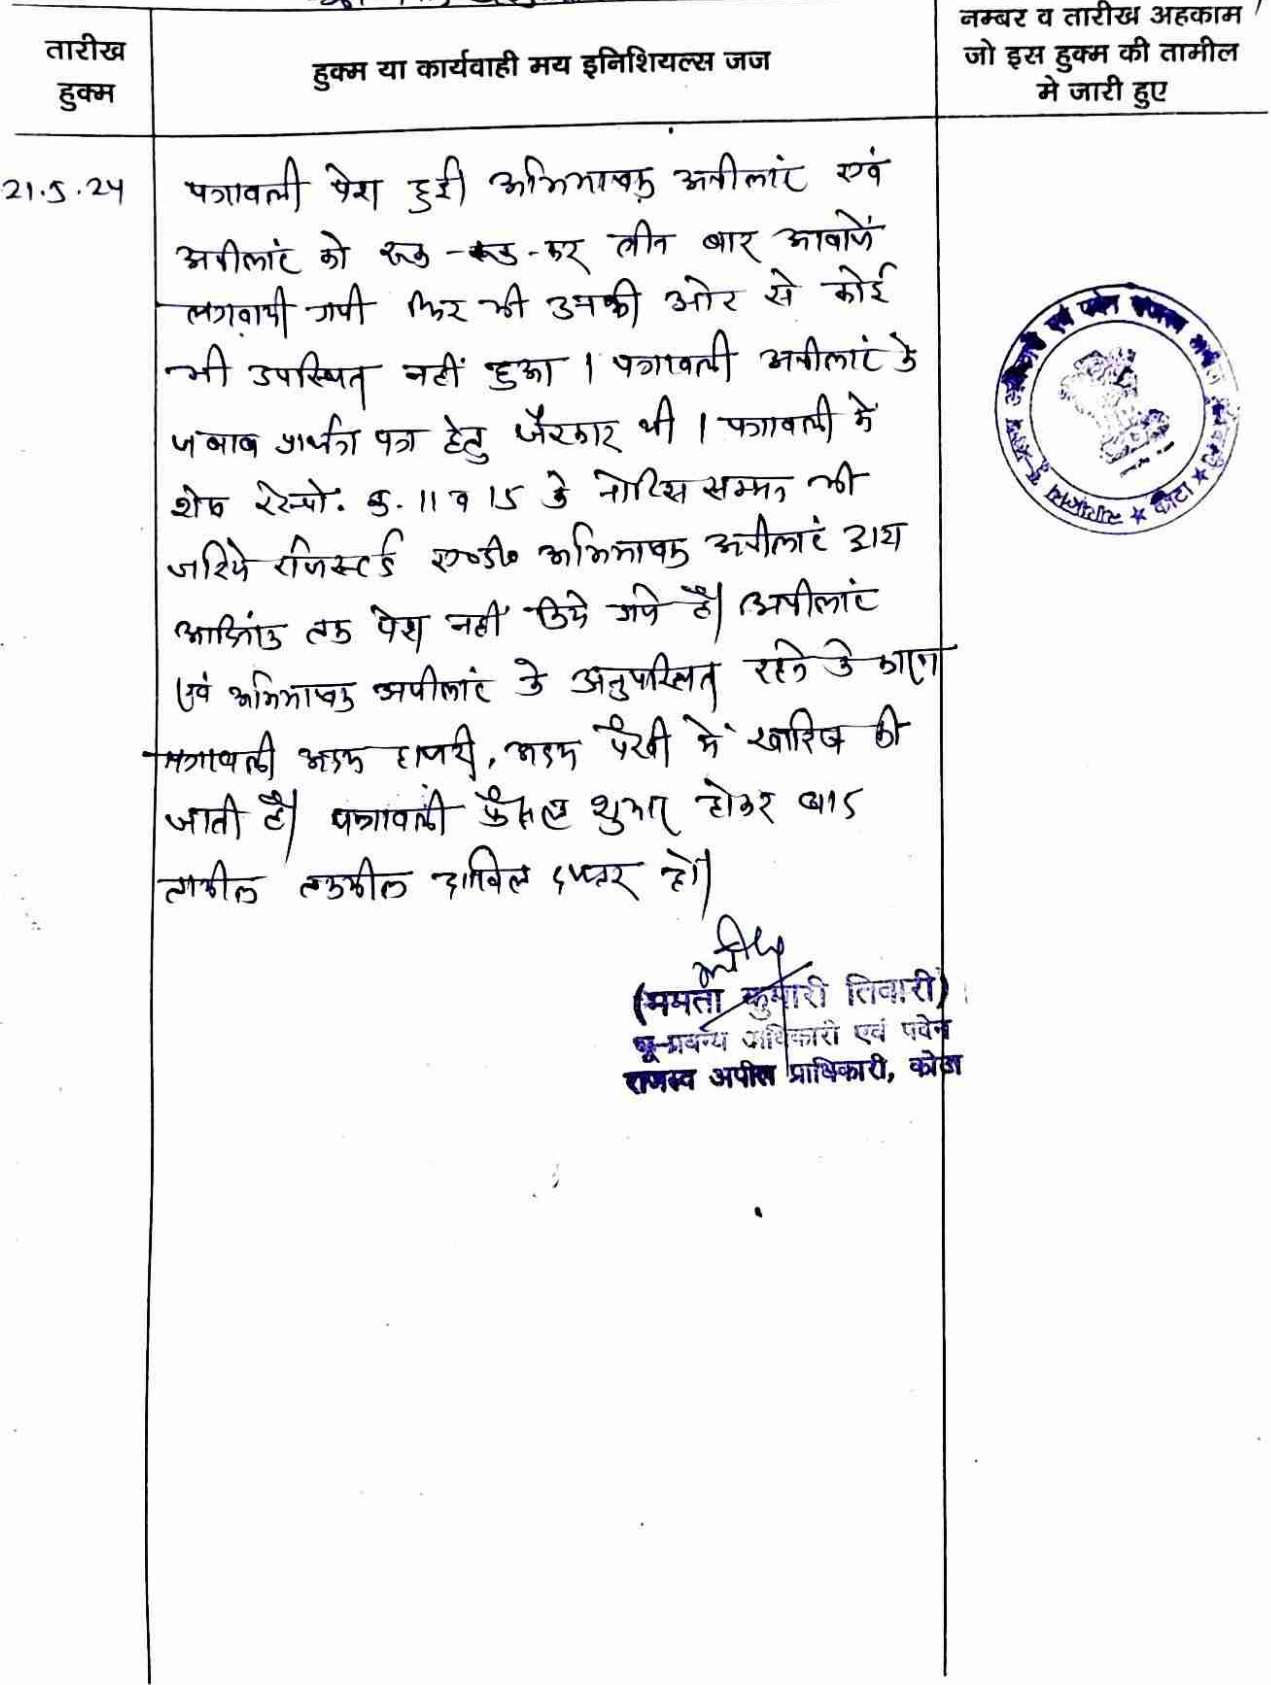 तारीख
हुक्म
हुक्म या कार्यवाही मय इनिशियल्स जज
नम्बर व तारीख अहकाम
जो इस हुक्म की तामील
मे जारी हुए
21.5.24
पत्रावली पेश हुई। अभिभाषक अपीलांट एवं
अपीलांट को रूक-रूक-कर तीन बार आवाजें
लगवायी गयी फिर भी उनकी ओर से कोई
भी उपस्थित नहीं हुआ। पत्रावली अपीलांट के
जबाब प्रार्थना पत्र हेतु जैरकार थी। पत्रावली में
शेष रेस्पो. क्र. 11 व 15 के नोटिस सम्मन भी
जरिये रजिस्टर्ड ए०डी० अभिभाषक अपीलांट द्वारा
आदिनांक तक पेश नहीं किये गये है। अपीलांट
एवं अभिभाषक अपीलांट के अनुपस्थित रहने के कारण
पत्रावली अदम हाजरी, अदम पैरवी में खारिज की
जाती है। पत्रावली फैसल शुमार होकर बाद
तामील तकमील दाखिल दफ्तर हो।
(ममता कुमारी तिवारी)
भू-प्रबन्ध अधिकारी एवं पदेन
राजस्व अपील प्राधिकारी, कोटा